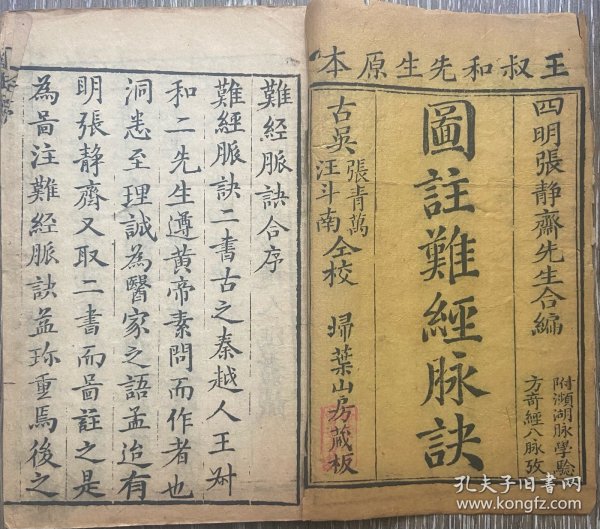 王叔和先生原本
四明張靜齋先生合編
附瀕湖脉學驗
方奇經八脉攷
圖註難經脉訣
古吳張青萬
汪斗南全校
埽葉山房藏板
難經脈訣合序
難經脈訣二書古之秦越人王叔
和二先生遵黃帝素問而作者也
洞悉至理誠為醫家之語孟迨有
明張靜齋又取二書而啚註之是
為啚注難經脈訣益珎重焉後之
孔夫子旧书网
www.kongfz.com